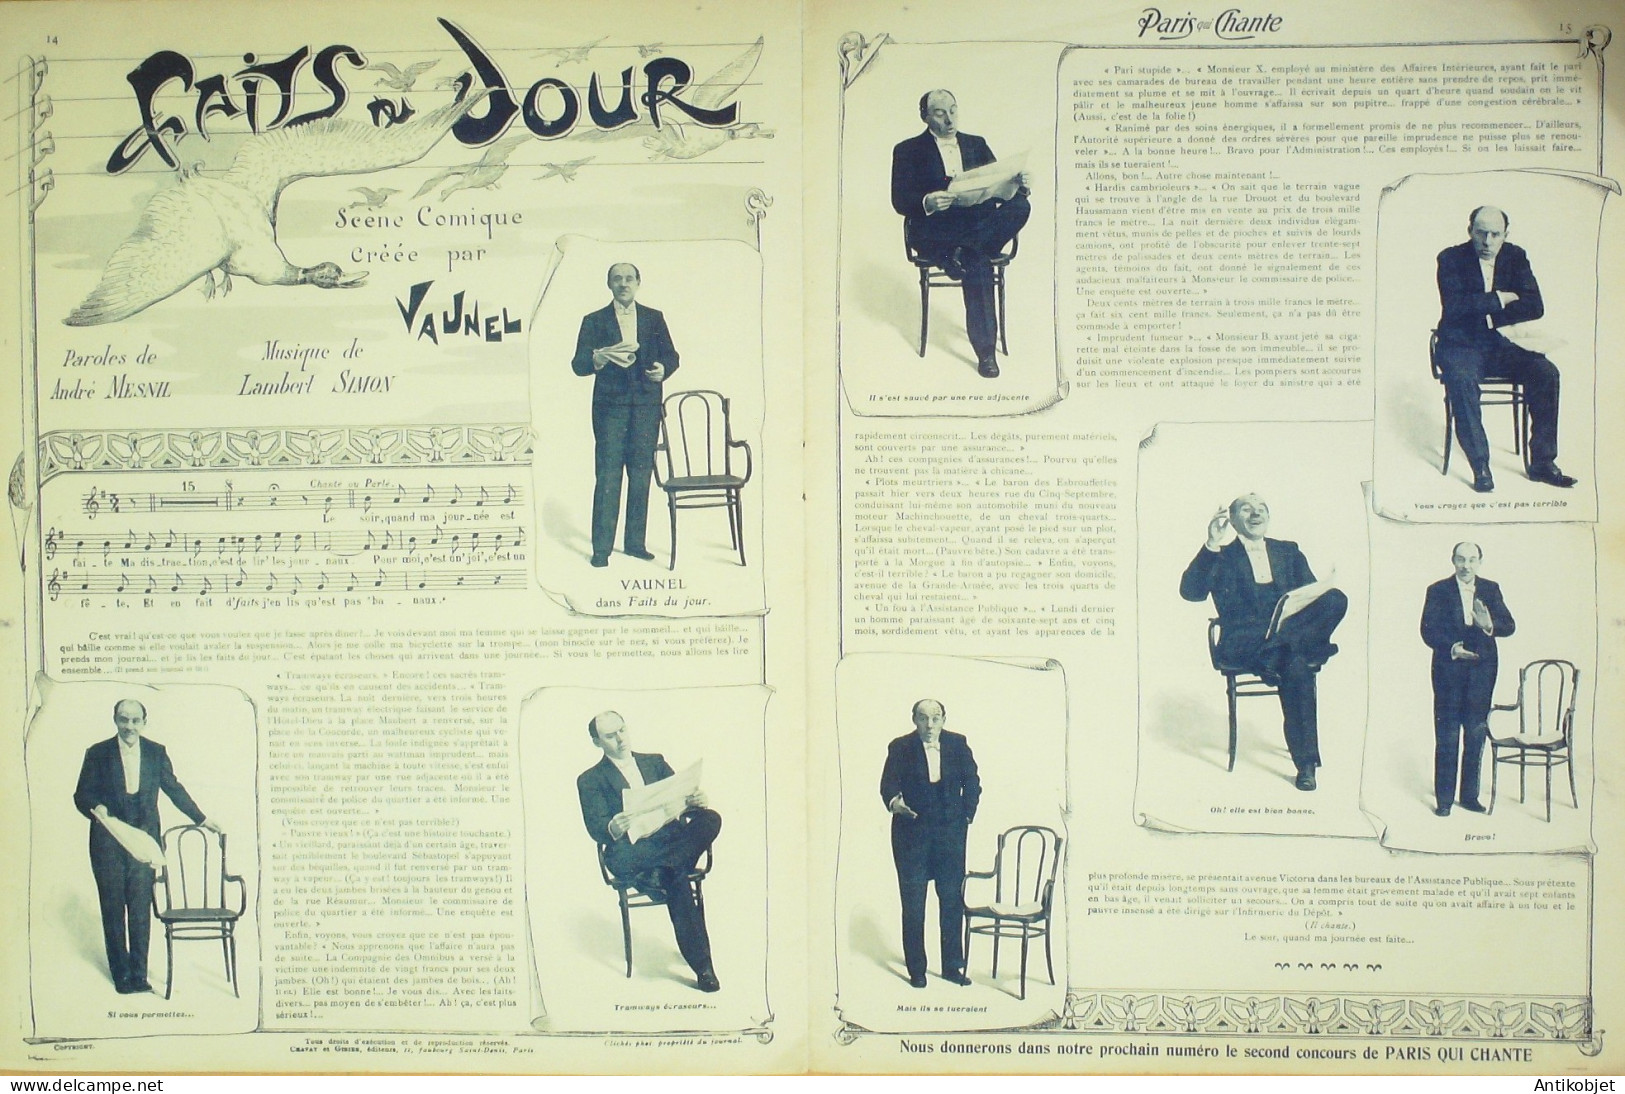 14
Faits du Jour
Scène Comique
Créée par
VAUNEL
Paroles de
André MESNIL
Musique de
Lambert SIMON
15
Chanté ou Parlé.
Le soir, quand ma jour_née est
fai_te Ma dis_trac_tion, c'est de lir' les jour_naux. Pour moi, c'est un' joi', c'est un
fê_te, Et en fait d'faits j'en lis qu'est pas ba_naux.
VAUNEL
dans Faits du jour.
C'est vrai! qu'est-ce que vous voulez que je fasse après dîner!... Je vois devant moi ma femme qui se laisse gagner par le sommeil... et qui bâille...
qui bâille comme si elle voulait avaler la suspension... Alors je me colle ma bicyclette sur la trompe... (mon binocle sur le nez, si vous préférez). Je
prends mon journal... et je lis les faits du jour... C'est épatant les choses qui arrivent dans une journée... Si vous le permettez, nous allons les lire
ensemble... (Il prend son journal et lit:)
« Tramways écraseurs. » Encore! ces sacrés tram-
ways... ce qu'ils en causent des accidents... « Tram-
ways écraseurs. La nuit dernière, vers trois heures
du matin, un tramway électrique faisant le service de
l'Hôtel-Dieu à la place Maubert a renversé, sur la
place de la Concorde, un malheureux cycliste qui ve-
nait en sens inverse... La foule indignée s'apprêtait à
faire un mauvais parti au wattman imprudent... mais
celui-ci, lançant la machine à toute vitesse, s'est enfui
avec son tramway par une rue adjacente où il a été
impossible de retrouver leurs traces. Monsieur le
commissaire de police du quartier a été informé. Une
enquête est ouverte... »
(Vous croyez que ce n'est pas terrible?)
« Pauvre vieux! » (Ça c'est une histoire touchante.)
« Un vieillard, paraissant déjà d'un certain âge, traver-
sait péniblement le boulevard Sébastopol s'appuyant
sur des béquilles, quand il fut renversé par un tram-
way à vapeur... (Ça y est! toujours les tramways!) Il
a eu les deux jambes brisées à la hauteur du genou et
de la rue Réaumur. Monsieur le commissaire de
police du quartier a été informé. Une enquête est
ouverte. »
Enfin, voyons, vous croyez que ce n'est pas épou-
vantable? « Nous apprenons que l'affaire n'aura pas
de suite... La Compagnie des Omnibus a versé à la
victime une indemnité de vingt francs pour ses deux
jambes. (Oh!) qui étaient des jambes de bois... (Ah!
Il rit.) Elle est bonne!... Je vous dis... Avec les faits-
divers... pas moyen de s'embêter!... Ah! ça, c'est plus
sérieux!...
Si vous permettez...
Tramways écraseurs...
COPYRIGHT.
Tous droits d'exécution et de reproduction réservés.
CHAVAT et GIRIER, éditeurs, 11, faubourg Saint-Denis, Paris
Clichés phot. propriété du journal.
Paris qui Chante
15
Il s'est sauvé par une rue adjacente
« Pari stupide »... « Monsieur X. employé au ministère des Affaires Intérieures, ayant fait le pari
avec ses camarades de bureau de travailler pendant une heure entière sans prendre de repos, prit immé-
diatement sa plume et se mit à l'ouvrage... Il écrivait depuis un quart d'heure quand soudain on le vit
pâlir et le malheureux jeune homme s'affaissa sur son pupitre... frappé d'une congestion cérébrale... »
(Aussi, c'est de la folie!)
« Ranimé par des soins énergiques, il a formellement promis de ne plus recommencer... D'ailleurs,
l'Autorité supérieure a donné des ordres sévères pour que pareille imprudence ne puisse plus se renou-
veler »... A la bonne heure!... Bravo pour l'Administration!... Ces employés!... Si on les laissait faire...
mais ils se tueraient!...
Allons, bon!... Autre chose maintenant!...
« Hardis cambrioleurs »... « On sait que le terrain vague
qui se trouve à l'angle de la rue Drouot et du boulevard
Haussmann vient d'être mis en vente au prix de trois mille
francs le mètre... La nuit dernière deux individus élégam-
ment vêtus, munis de pelles et de pioches et suivis de lourds
camions, ont profité de l'obscurité pour enlever trente-sept
mètres de palissades et deux cents mètres de terrain... Les
agents, témoins du fait, ont donné le signalement de ces
audacieux malfaiteurs à Monsieur le commissaire de police...
Une enquête est ouverte... »
Deux cents mètres de terrain à trois mille francs le mètre...
ça fait six cent mille francs. Seulement, ça n'a pas dû être
commode à emporter!
« Imprudent fumeur »... « Monsieur B. ayant jeté sa ciga-
rette mal éteinte dans la fosse de son immeuble... il se pro-
duisit une violente explosion presque immédiatement suivie
d'un commencement d'incendie... Les pompiers sont accourus
sur les lieux et ont attaqué le foyer du sinistre qui a été
Vous croyez que c'est pas terrible
rapidement circonscrit... Les dégâts, purement matériels,
sont couverts par une assurance... »
Ah! ces compagnies d'assurances!... Pourvu qu'elles
ne trouvent pas là matière à chicane...
« Plots meurtriers »... « Le baron des Esbrouffettes
passait hier vers deux heures rue du Cinq-Septembre,
conduisant lui-même son automobile muni du nouveau
moteur Machinchouette, de un cheval trois-quarts...
Lorsque le cheval-vapeur, ayant posé le pied sur un plot,
s'affaissa subitement... Quand il se releva, on s'aperçut
qu'il était mort... (Pauvre bête.) Son cadavre a été trans-
porté à la Morgue à fin d'autopsie... » Enfin, voyons,
c'est-il terrible? « Le baron a pu regagner son domicile,
avenue de la Grande-Armée, avec les trois quarts de
cheval qui lui restaient... »
« Un fou à l'Assistance Publique »... « Lundi dernier
un homme paraissant âgé de soixante-sept ans et cinq
mois, sordidement vêtu, et ayant les apparences de la
Oh! elle est bien bonne.
Bravo!
Mais ils se tueraient
plus profonde misère, se présentait avenue Victoria dans les bureaux de l'Assistance Publique... Sous prétexte
qu'il était depuis longtemps sans ouvrage, que sa femme était gravement malade et qu'il avait sept enfants
en bas âge, il venait solliciter un secours... On a compris tout de suite qu'on avait affaire à un fou et le
pauvre insensé a été dirigé sur l'Infirmerie du Dépôt. »
(Il chante.)
Le soir, quand ma journée est faite...
Nous donnerons dans notre prochain numéro le second concours de PARIS QUI CHANTE
Antikobjet